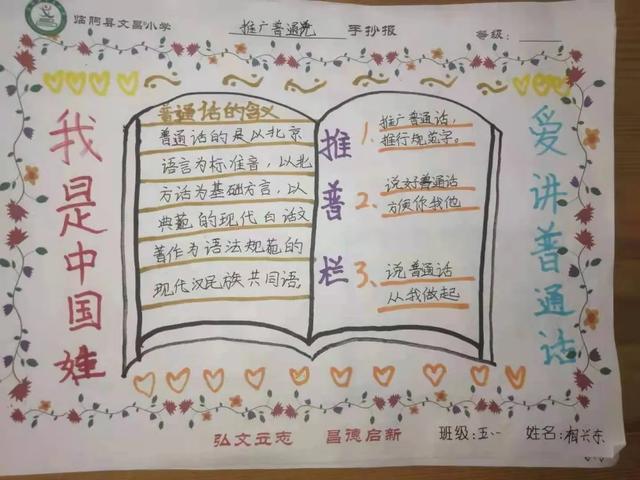 临朐县文昌小学 推广普通话 手抄报 等级：
我是中国娃
普通话的含义
普通话的是以北京
语言为标准音，以北
方话为基础方言，以
典范的现代白话文
著作为语法规范的
现代汉民族共同语。
推普栏
1.推广普通话，
推行规范字。
2.说好普通话
方便你我他
3.说普通话
从我做起
爱讲普通话
弘文立志 昌德启新 班级：五·一 姓名：相兴东